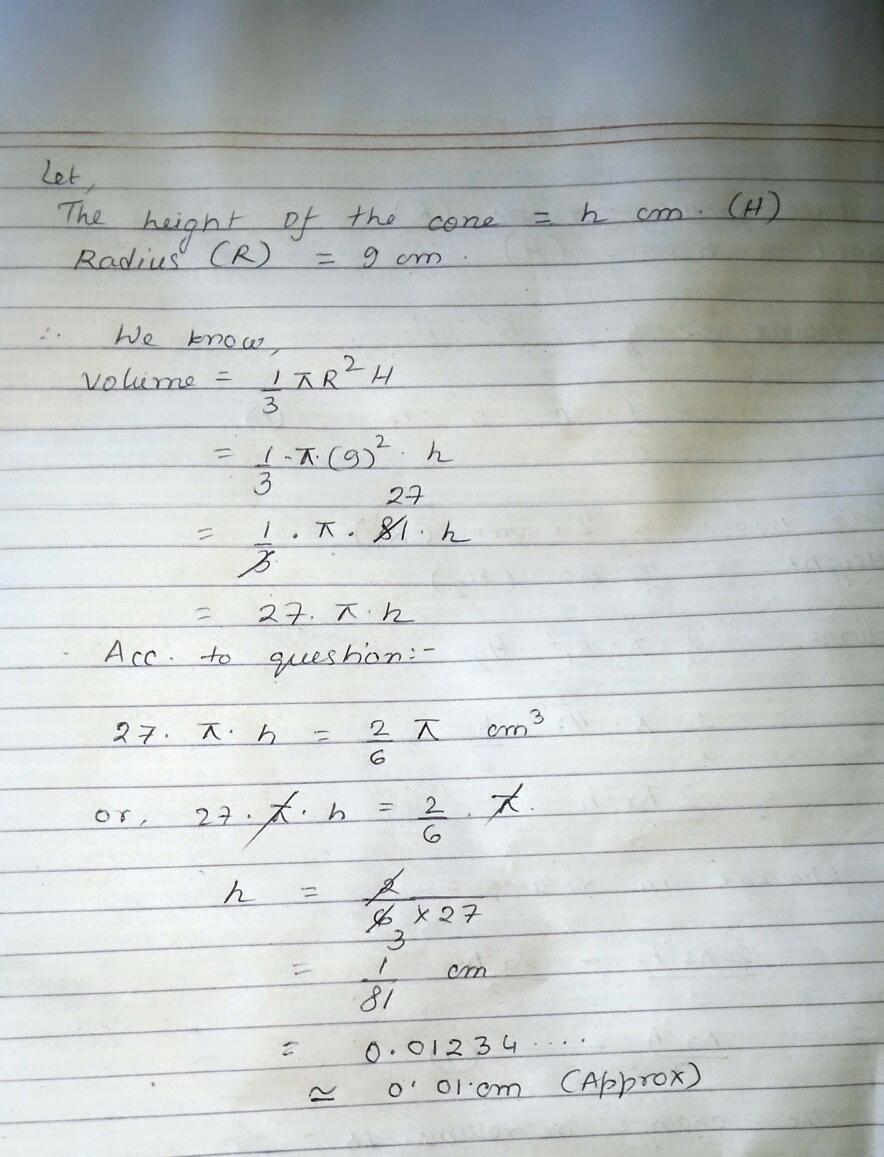 Let,
The height of the cone = h cm. (H)
Radius (R) = 9 cm.
∴ We know,
Volume = 1/3 πR² H
= 1/3 · π · (9)² · h
27
= 1/3 · π · 81 · h
= 27. π. h
Acc. to question:-
27. π. h = 2/6 π cm³
or, 27. π. h = 2/6 . π.
h = 2/6 × 27
3
= 1/81 cm
= 0.01234....
≃ 0.01 cm (Approx)